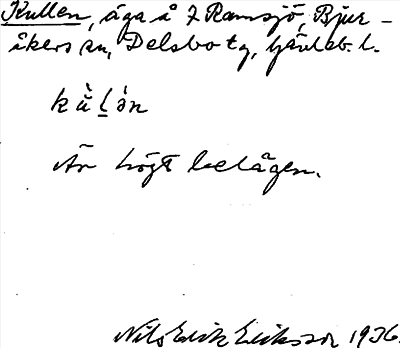 Kullen, äga å 7 Ramsjö, Bjur-
åkers sn, Delsbo tg, Gävleb. l.
kùlén
Är högt belägen.
Nils Erik Eriksson 1936.